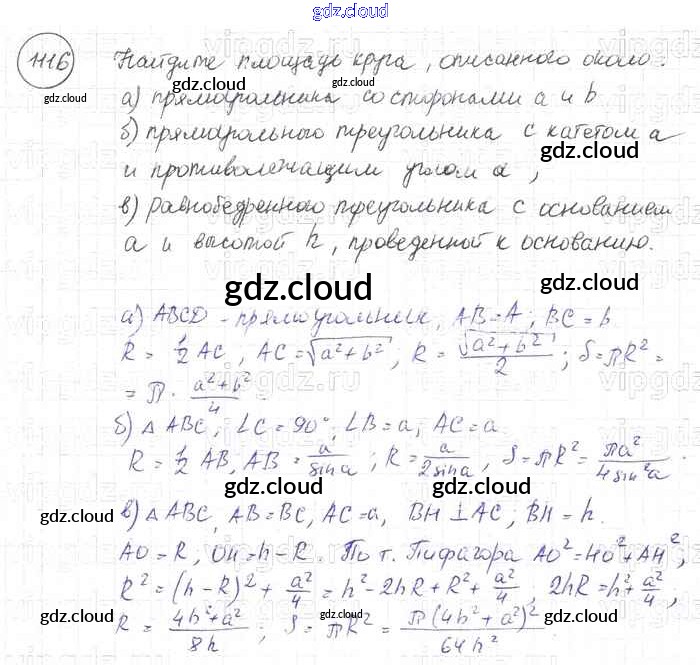 gdz.cloud
1116 Найдите площадь круга, описанного около:
а) прямоугольника со сторонами a и b
б) прямоугольного треугольника с катетом a
и противолежащим углом α,
в) равнобедренного треугольника с основанием
a и высотой h, проведенной к основанию.
gdz.cloud
а) ABCD - прямоугольник, AB = A; BC = b
R = 1/2 AC, AC = √(a² + b²), R = √(a² + b²)/2; S = πR² =
= π · (a² + b²)/4
б) △ ABC, ∠C = 90°, ∠B = α; AC = a
R = 1/2 AB, AB = a/sin α; R = a/(2 sin α), S = πR² = πa²/(4 sin² α)
в) △ ABC, AB = BC, AC = a, BH ⊥ AC, BH = h.
AO = R, OH = h - R. По т. Пифагора AO² = HO² + AH²,
R² = (h - R)² + a²/4 = h² - 2hR + R² + a²/4, 2hR = h² + a²/4,
R = (4h² + a²)/8h; S = πR² = π(4h² + a²)²/64h²